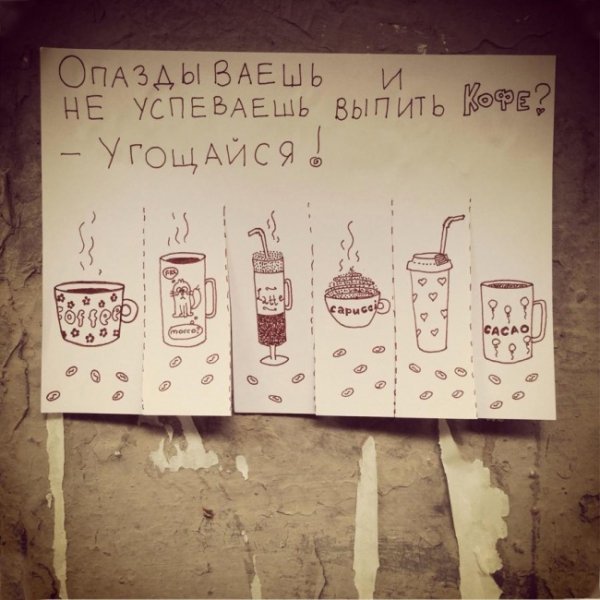 Опаздываешь и
не успеваешь выпить кофе?
- Угощайся!
COFFEE
Latte
capucci
CACAO